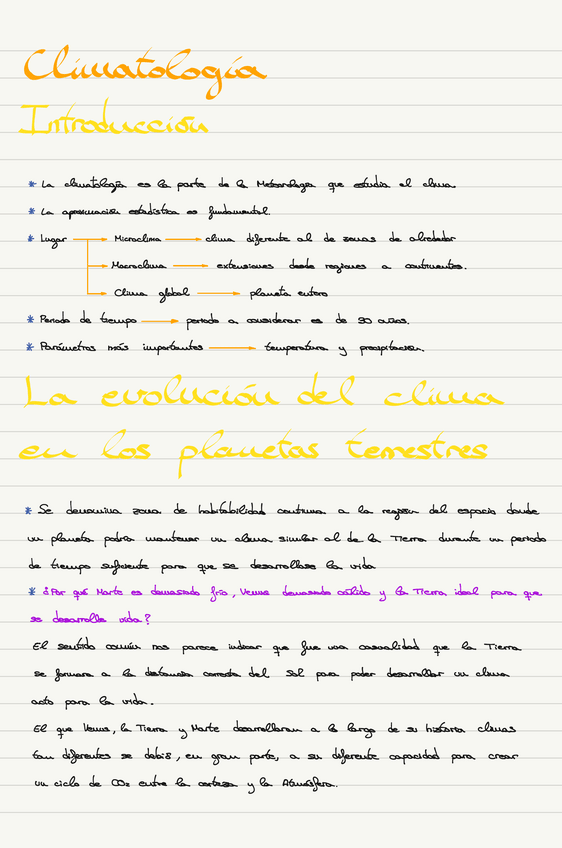 Climatología
Introducción
* La climatología es la parte de la Meteorología que estudia el clima.
* La aproximación estadística es fundamental.
* Lugar → Microclima → clima diferente al de zonas de alrededor
→ Macroclima → extensiones desde regiones a continentes.
→ Clima global → planeta entero
* Periodo de tiempo → periodo a considerar es de 30 años.
* Parámetros más importantes → temperatura y precipitación.
La evolución del clima
en los planetas terrestres
* Se denomina zona de habitabilidad continua a la región del espacio donde
un planeta podría mantener un clima similar al de la Tierra durante un periodo
de tiempo suficiente para que se desarrollase la vida
* ¿Por qué Marte es demasiado frío, Venus demasiado cálido y la Tierra ideal para que
se desarrolle vida?
El sentido común nos parece indicar que fue una casualidad que la Tierra
se formara a la distancia correcta del Sol para poder desarrollar un clima
acto para la vida.
El que Venus, la Tierra y Marte desarrollaran a lo largo de su historia climas
tan diferentes se debió, en gran parte, a su diferente capacidad para crear
un ciclo de CO₂ entre la corteza y la Atmósfera.